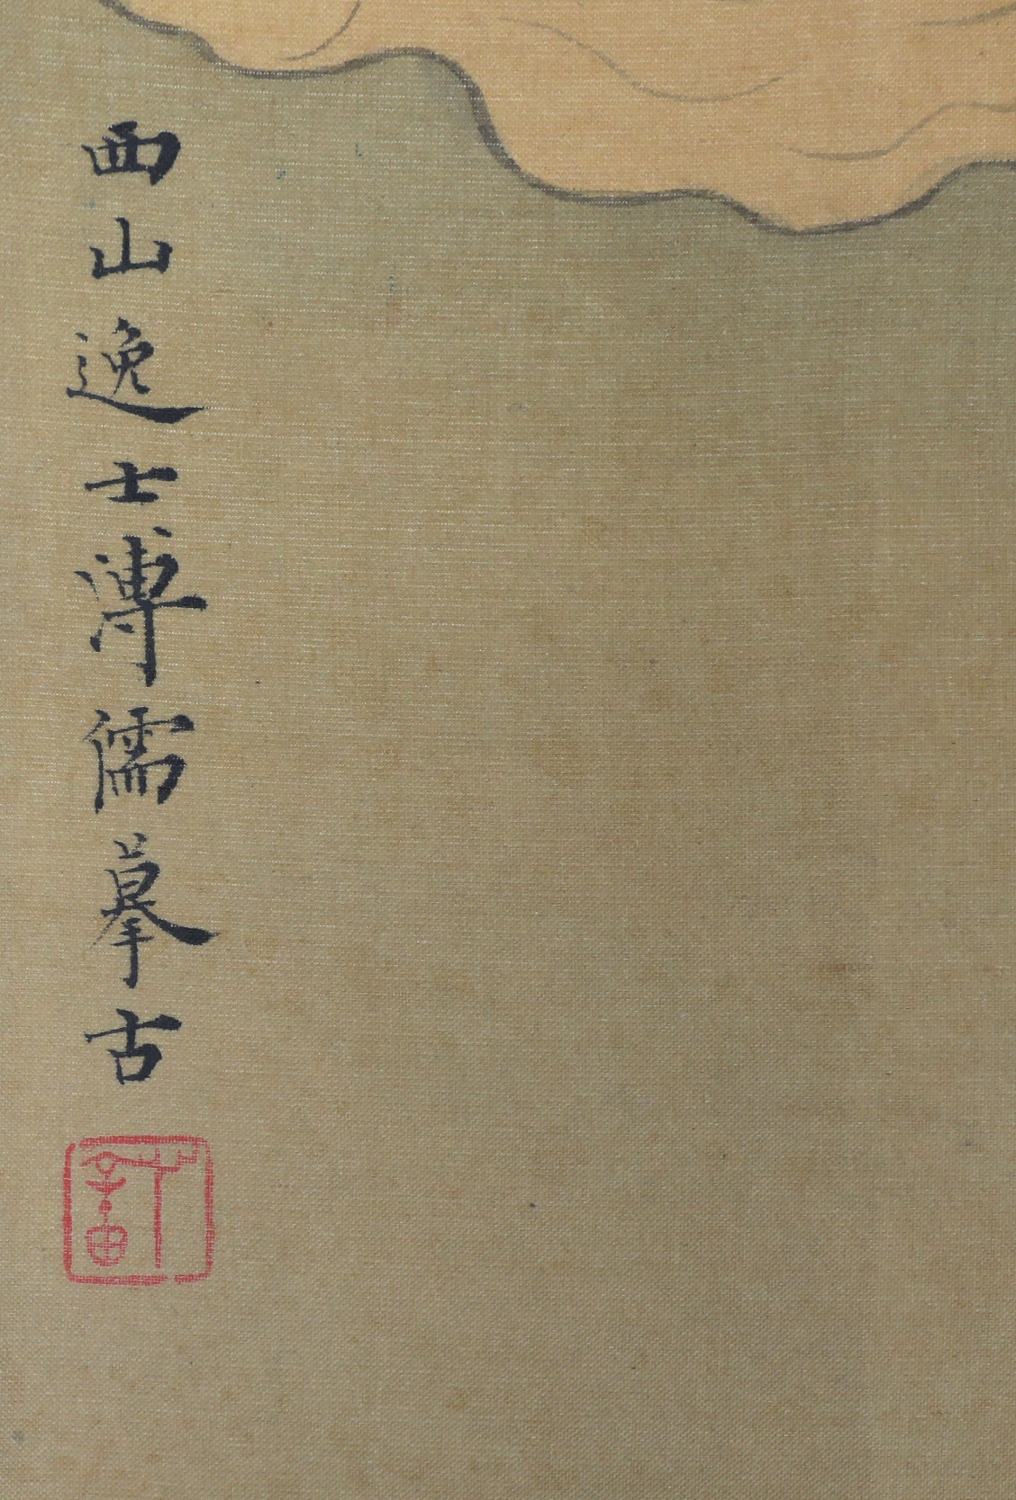 西山逸士溥儒摹古